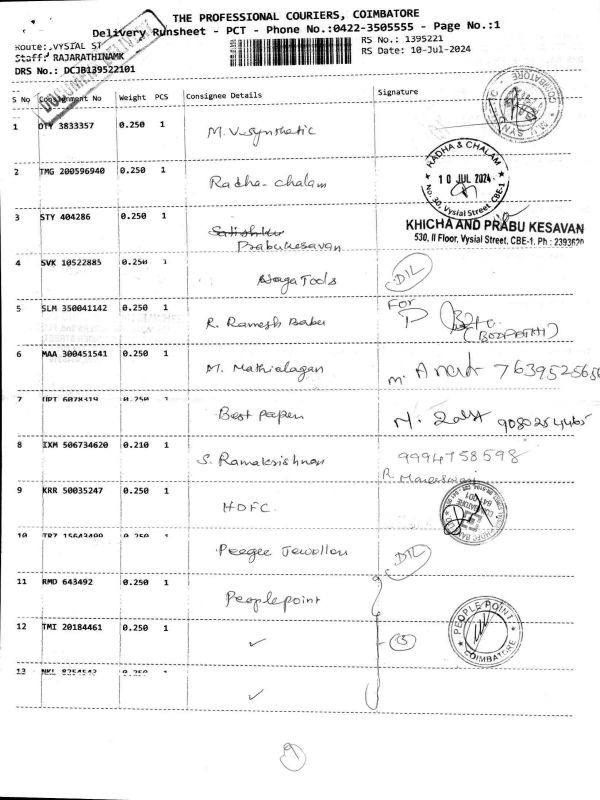 THE PROFESSIONAL COURIERS, COIMBATORE
Delivery Runsheet - PCT - Phone No.:0422-3505555 - Page No.:1
Route: VYSIAL ST
RS No.: 1395221
Staff: RAJARATHINAMK
RS Date: 10-Jul-2024
DRS No.: DCJB139522101
S No Consignment No Weight PCS Consignee Details Signature
1 DTY 3833357 0.250 1 M.V. Synthetic
COIMBATORE
2 TMG 200596940 0.250 1 Radha - Chalam
RADHA & CHALAM
10 JUL 2024
No. 30, Vysial Street, CBE-1
3 STY 404286 0.250 1 Prabukesavan
KHICHA AND PRABU KESAVAN
530, II Floor, Vysial Street, CBE-1. Ph : 2393620
4 SVK 10522885 0.250 1 Naga Tools DTL
5 SLM 350041142 0.250 1 R. Ramesh Babu For
(BOOPATHI)
6 MAA 300451541 0.250 1 M. Mathialagan M.
7 0.250 Best paper 9080254465
8 IXM 506734620 0.210 1 S. Ramakrishnan 9994758598
9 KRR 50035247 0.250 1 HDFC
10 0.250 Peegee Jewellery DTL
11 RMD 643492 0.250 1 Peoplepoint
12 TMI 20184461 0.250 1 ✓ 3
PEOPLE POINT
COIMBATORE
13 0.250 ✓
9